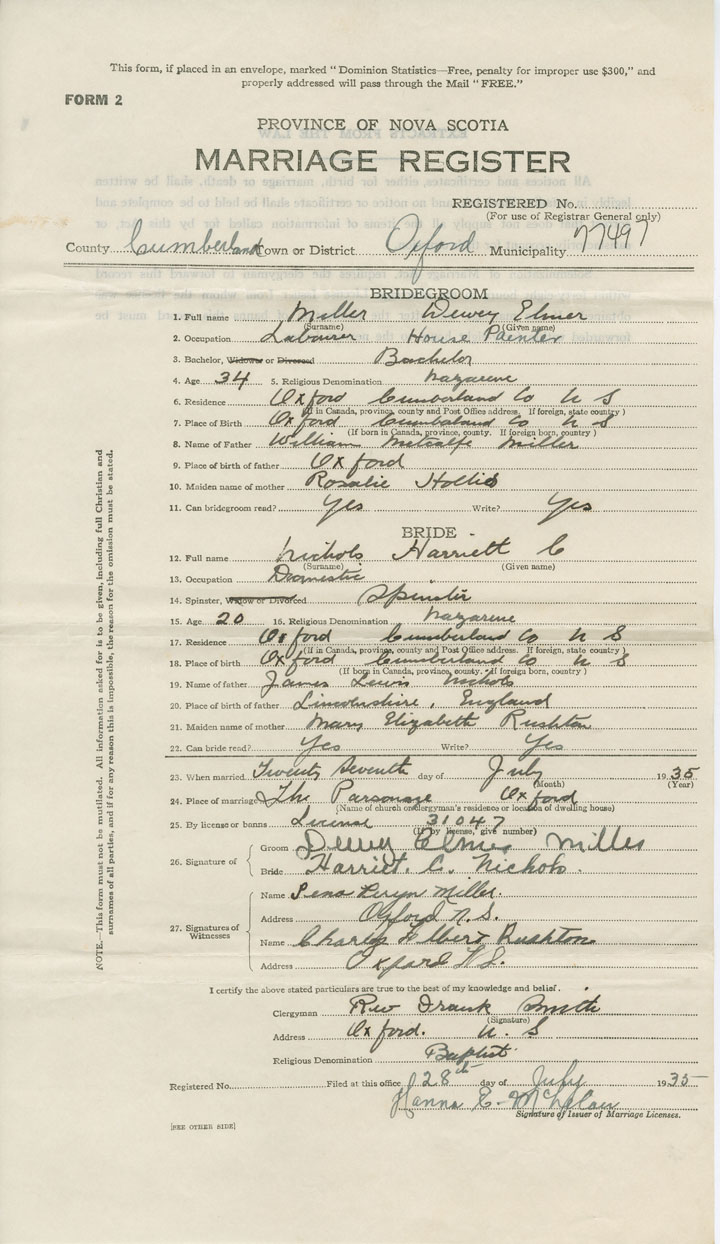 This form, if placed in an envelope, marked "Dominion Statistics—Free, penalty for improper use $300," and
properly addressed will pass through the Mail "FREE."
FORM 2
PROVINCE OF NOVA SCOTIA
MARRIAGE REGISTER
REGISTERED No.
(For use of Registrar General only)
County Cumberland Town or District Oxford Municipality 77497
BRIDEGROOM
1. Full name Miller Dewey Elmer
(Surname) (Given name)
2. Occupation Labourer House Painter
3. Bachelor, Widower or Divorced Bachelor
4. Age 34 5. Religious Denomination Nazarene
6. Residence Oxford Cumberland Co N S
(If in Canada, province, county and Post Office address. If foreign, state country)
7. Place of Birth Oxford Cumberland Co N S
(If born in Canada, province, county. If foreign born, country)
8. Name of Father William Metcalfe Miller
9. Place of birth of father Oxford
10. Maiden name of mother Rosalie Hollis
11. Can bridegroom read? Yes Write? Yes
BRIDE
12. Full name Nichols Harriett C
(Surname) (Given name)
13. Occupation Domestic
14. Spinster, Widow or Divorced Spinster
15. Age 20 16. Religious Denomination Nazarene
17. Residence Oxford Cumberland Co N S
(If in Canada, province, county and Post Office address. If foreign, state country)
18. Place of birth Oxford Cumberland Co N S
(If born in Canada, province, county. If foreign born, country)
19. Name of father James Lewis Nichols
20. Place of birth of father Lincolnshire, England
21. Maiden name of mother Mary Elizabeth Rushton
22. Can bride read? Yes Write? Yes
23. When married Twenty Seventh day of July 1935
(Month) (Year)
24. Place of marriage The Parsonage Oxford
(Name of church or clergyman's residence or location of dwelling house)
25. By license or banns License 31047
(If by license, give number)
26. Signature of
Groom Dewey Elmer Miller
Bride Harriet. C. Nichols.
27. Signatures of Witnesses
Name Miller.
Address Oxford N.S.
Name Charles Rushton
Address Oxford N.S.
I certify the above stated particulars are true to the best of my knowledge and belief.
Clergyman Rev Frank Smith
(Signature)
Address Oxford. N. S
Religious Denomination Baptist
Registered No. Filed at this office 28th day of July 1935
Hanna E.
Signature of Issuer of Marriage Licenses.
[SEE OTHER SIDE]
NOTE.—This form must not be mutilated. All information asked for is to be given, including full Christian and
surnames of all parties, and if for any reason this is impossible, the reason for the omission must be stated.